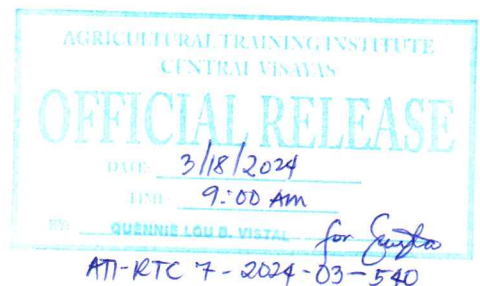 AGRICULTURAL TRAINING INSTITUTE
CENTRAL VISAYAS
OFFICIAL RELEASE
DATE: 3/18/2024
TIME: 9:00 AM
BY: QUENNIE LOU B. VISTAL for
ATI-RTC 7 - 2024 - 03 - 540